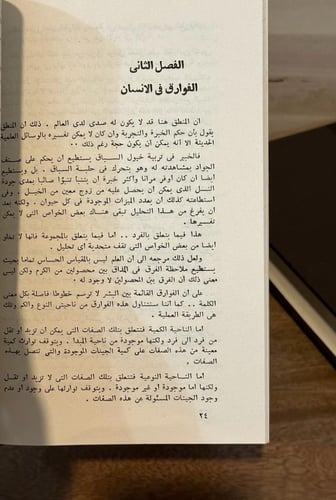 الفصل الثانى
الفوارق فى الانسان
ان المنطق هنا قد لا يكون له صدى لدى العالم . ذلك ان المنطق
يقول بأن حكم الخبرة والتجربة وان كان لا يمكن تفسيره بالوسائل العلمية
الحديثة الا أنه يمكن أن يكون حجة رغم ذلك ٠٠
فالخبير فى تربية خيول السباق يستطيع ان يحكم على صنف
الجواد بمشاهدته له وهو يتحرك فى حلبة السباق . بل ويستطيع
ايضا ان كان أوفر مرانا وأكثر خبرة أن يتنبأ تنبؤا صائبا بمدى جودة
النسل الذى يمكن أن يحصل عليه من زوج معين من الخيل . وفى
استطاعته كذلك أن يعدد الميزات الموجودة فى كل حيوان . ولكنه بعد
أن يفرغ من هذا التحليل تبقى هناك بعض الخواص التى لا يمكن
تفسيرها .
هذا فيما يتعلق بالفرد .. اما فيما يتعلق بالمجموعة فانها لا تخلو
ايضا من بعض الخواص التى تقف متحدية أى تحليل .
ولعل ذلك مرجعه الى أن العلم ليس بالمقياس الحساس تماما بحيث
يستطيع ملاحظة الفرق فى المذاق بين محصولين من الكرم ولكن ليس
معنى ذلك أن الفرق بين المحصولين لا وجود له .
على أن الفوارق القائمة بين البشر لا ترسم خطوطا فاصلة بكل معنى
الكلمة .. كما أننا سنتناول هذه الفوارق من ناحيتى النوع والكم وتلك
هى الطريقة العملية .
اما الناحية الكمية فتتعلق بتلك الصفات التى يمكن أن تزيد أو تقل
من فرد الى فرد ولكنها موجودة من ناحية المبدأ . ويتوقف توارث كمية
معينة من هذه الصفات على كمية الجينات الموجودة والتى تتصل بهذه
الصفات .
اما الناحية النوعية فتتعلق بتلك الصفات التى لا تزيد أو تقل
ولكنها اما موجودة أو غير موجودة . ويتوقف توارثها على وجود أو عدم
وجود الجينات المسئولة عن هذه الصفات .
٢٤